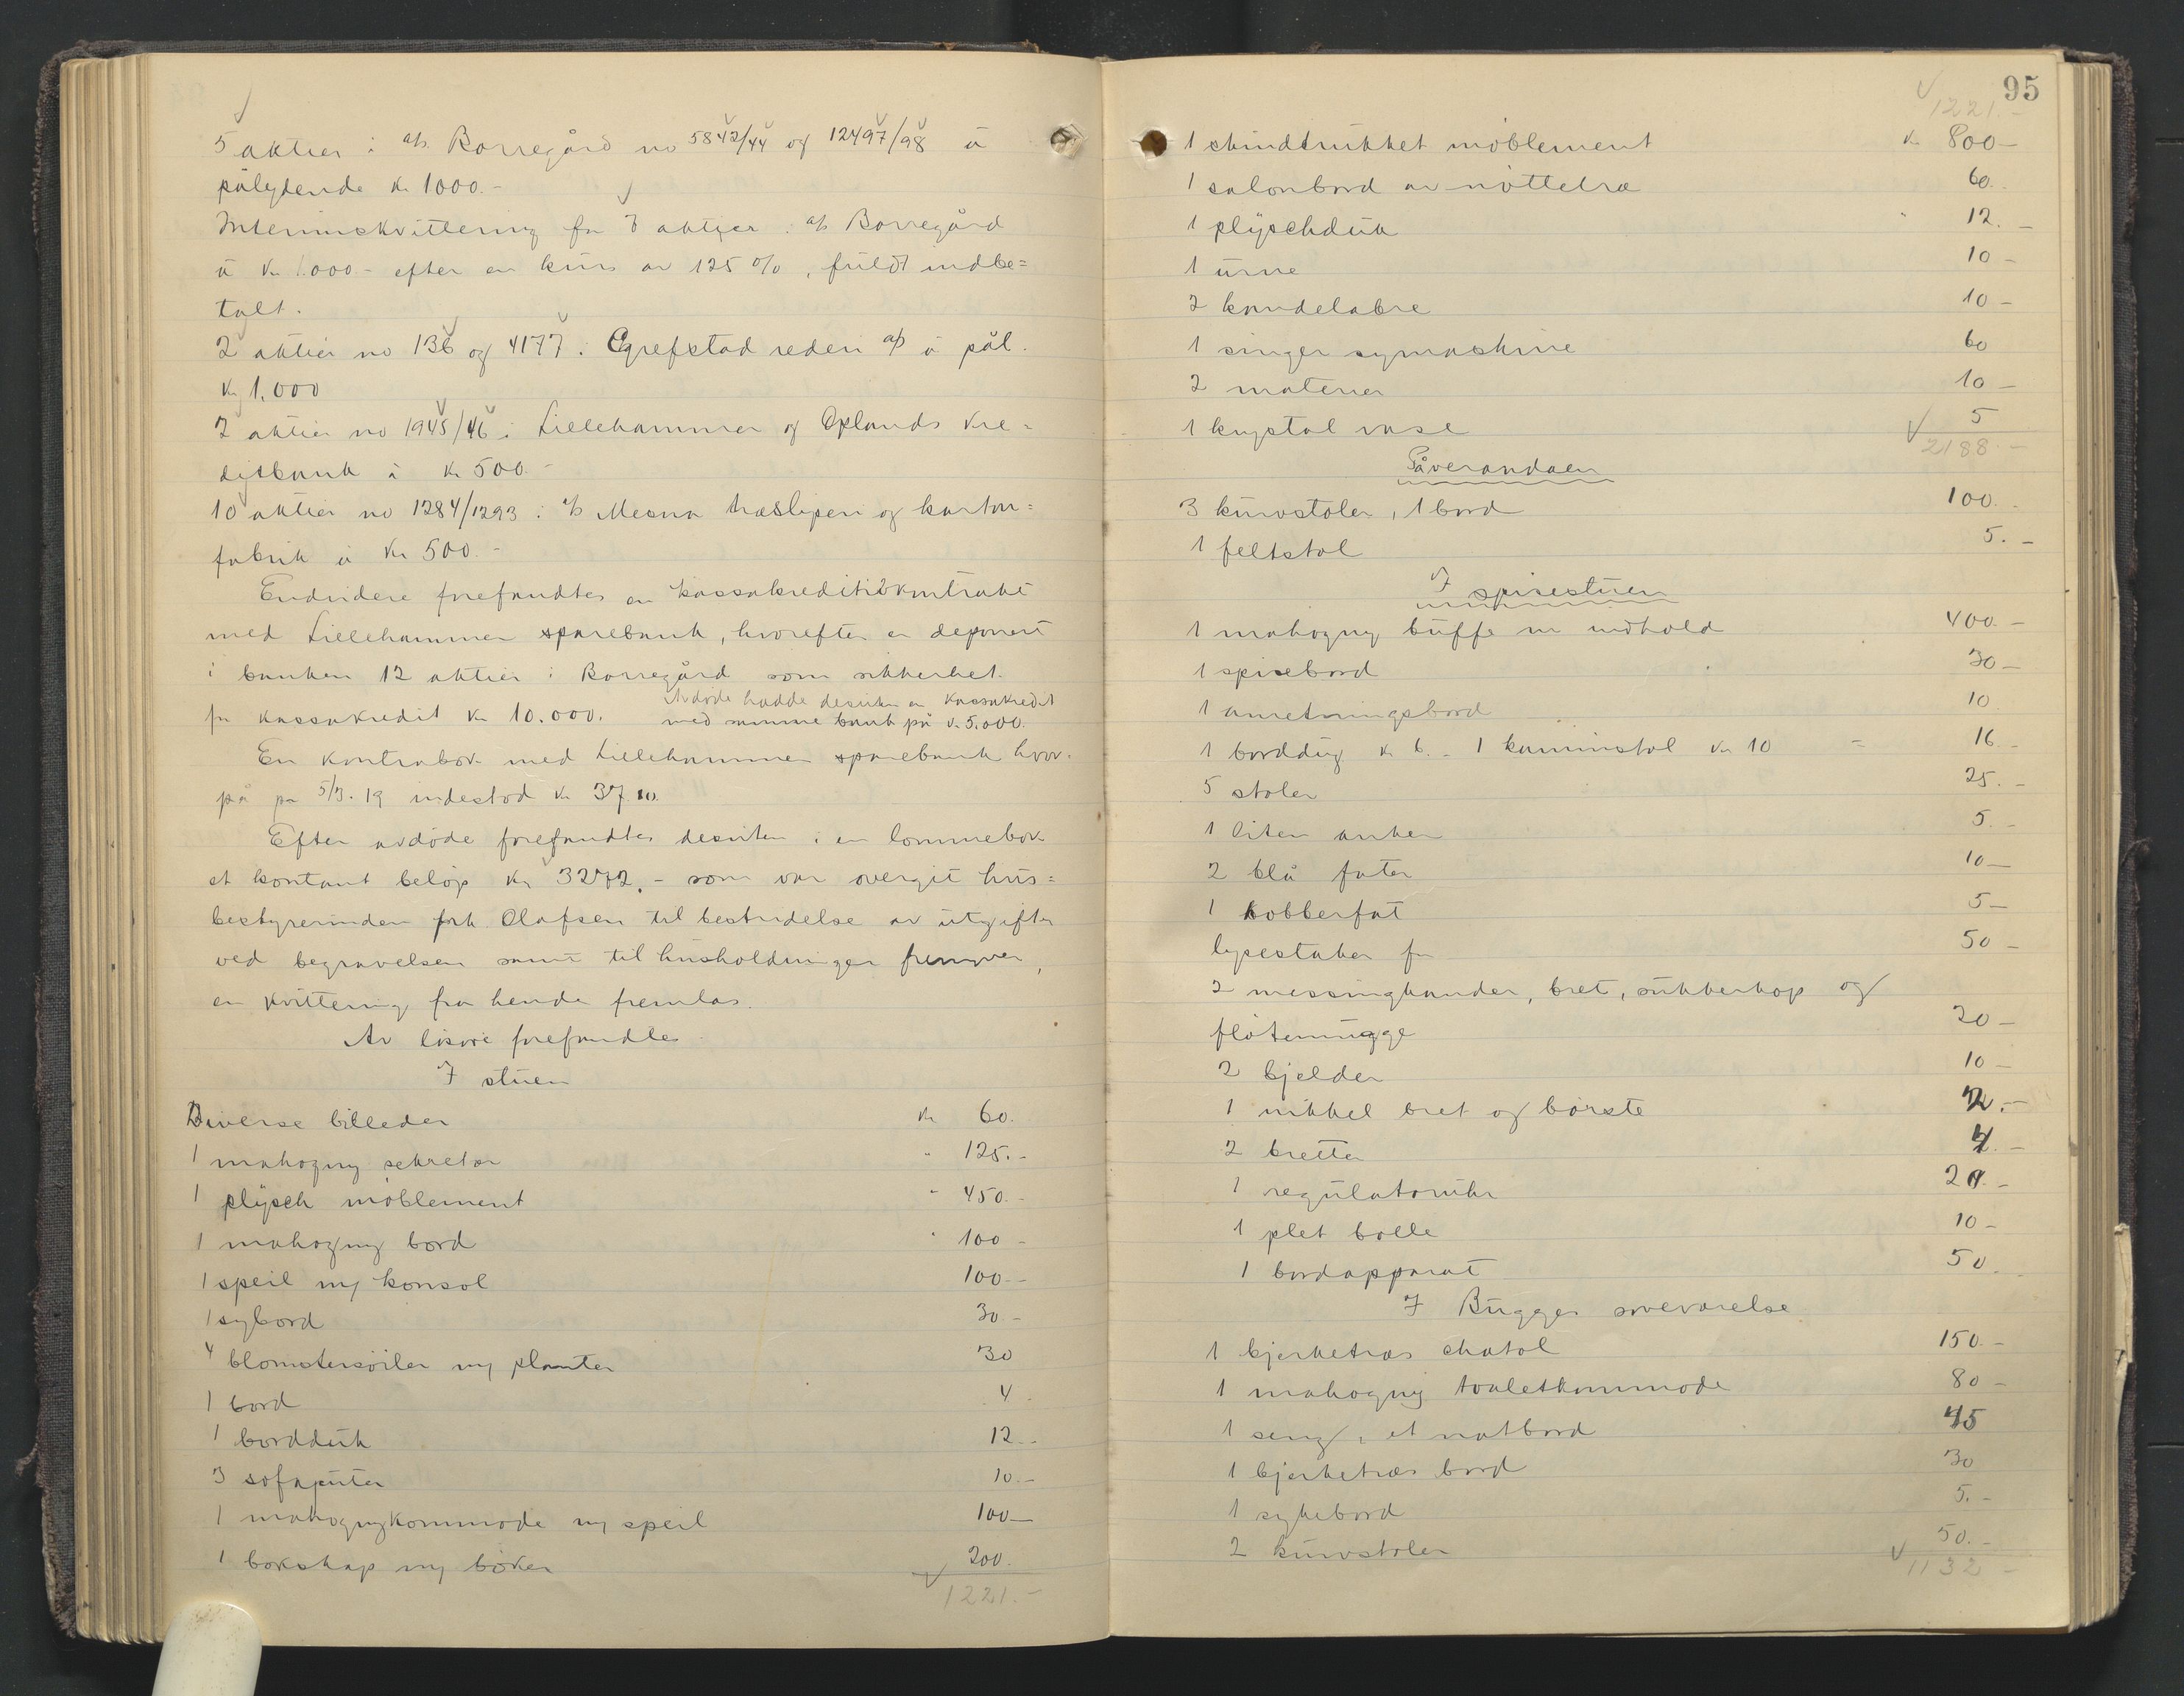 5 aktier i a/s Borregård no 5842/44 og 12497/98 á
pålydende kr 1000.-
Interimskvittering for 7 aktier i a/s Borregård
á kr 1.000- efter en kurs av 125 %, fuldt indbe=
talt.
2 aktier no 136 og 4177 i Grefstad rederi a/s á pål.
kr 1.000
2 aktier no 1945/46 i Lillehammer og Oplands Kre=
ditbank á kr 500.-
10 aktier no 1284/1293 i a/s Mesna træsliperi og karton=
fabrik á kr 500.-
Endvidere forefandtes en kassakreditivkontrakt
med Lillehammer sparebank, hvorefter er deponert
i banken 12 aktier i Borregård som sikkerhet
for kassakredit kr 10.000. Avdøde hadde desuten en kassakredit
med samme bank på kr 5.000.
En kontrabok med Lillehammer sparebank hvor-
på pr 5/3. 19 indestod kr 37.10.
Efter avdøde forefandtes desuten i en lommebok
et kontant beløp kr 3272.- som var overgit hus=
bestyrerinden frk. Olafsen til bestridelse av utgifter
ved begravelsen samt til husholdningen fremover,
en kvittering fra hende fremlaa.
Av løsøre forefandtes
I stuen
Diverse billeder kr 60.
1 mahogny sekretær " 125.-
1 plysch møblement " 450.-
1 mahogny bord " 100-
1 speil m/ konsol 100.-
1 sybord 30.-
4 blomstersøiler m/ planter 30
1 bord 4.
1 bordduk 12.-
3 sofaputer 10.-
1 mahognykommode m/ speil 100-
1 bokskap m/ bøker 200.
1221.-
95
1221.-
1 skindtrukket møblement kr 800-
1 salonbord av nøttetræ 60.
1 plyschduk " 12.-
1 urne 10-
2 kandelabre 10-
1 singer symaskine 60
2 matter 10-
1 krystal vase 5
2188.-
På verandaen
3 kurvstoler, 1 bord 100.
1 feltstol 5.-
I spisestuen
1 mahogny buffe m indhold 400.-
1 spisebord 30-
1 anretningsbord 10
1 borddug kr 6.- 1 kaminstol kr 10 = 16.-
5 stoler 25.-
1 liten anker 5.-
2 blå fater 10-
1 kobberfat 5-
lysestaker for 50-
2 messingkander, bret, sukkerkop og
fløtemugge 20-
2 bjelder 10-
1 nikkel bret og børste 2.-
2 bretter 4.-
1 regulatoruhr 20.-
1 plet bolle 10-
1 bordapparat 50.
I Bugges soveværelse
1 bjerketræs chatol 150.-
1 mahogny toaletkommode 80-
1 seng, et natbord 45
1 bjerketræs bord 30
1 sykebord 5.-
2 kurvstoler 50.-
1132-